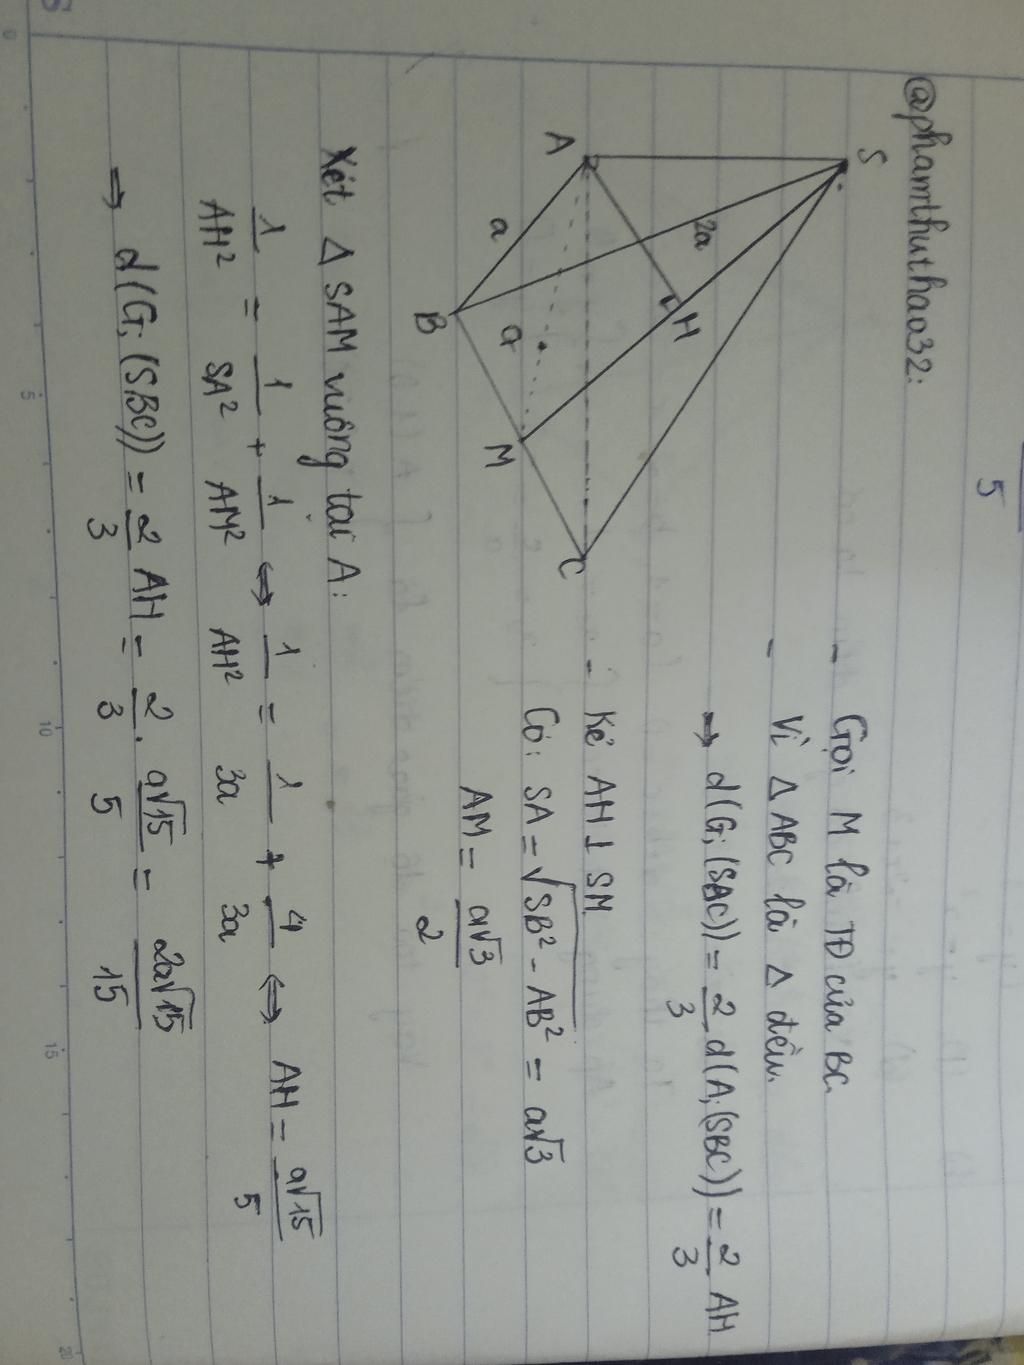 5
@phamthuthao32:
S
2a
H
A
a
B
G
M
C
- Gọi M là TĐ của BC.
- Vì Δ ABC là Δ đều.
→ d(G; (SBC)) = 2/3 d(A; (SBC)) = 2/3 AH
- Kẻ AH ⊥ SM
Có: SA = √(SB² - AB²) = a√3
AM = a√3/2
Xét Δ SAM vuông tại A:
1/AH² = 1/SA² + 1/AM² ⇔ 1/AH² = 1/3a + 4/3a ⇔ AH = a√15/5
→ d(G; (SBC)) = 2/3 AH = 2/3 . a√15/5 = 2a√15/15
0 5 10 15 20